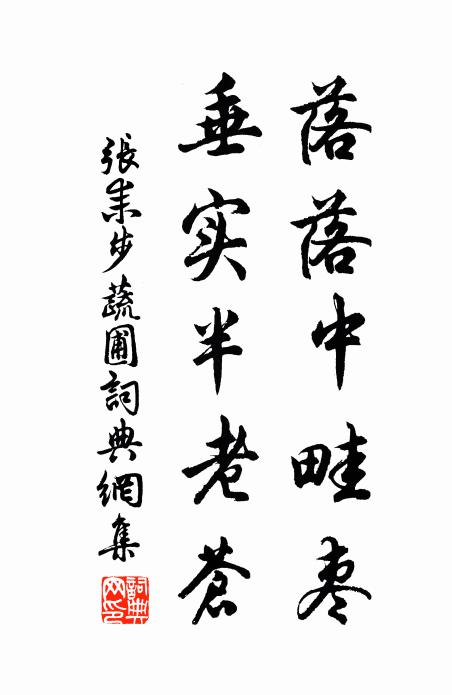 落落中畦枣
垂实半老苍
張耒步蔬圃詞典網集
詞典网印